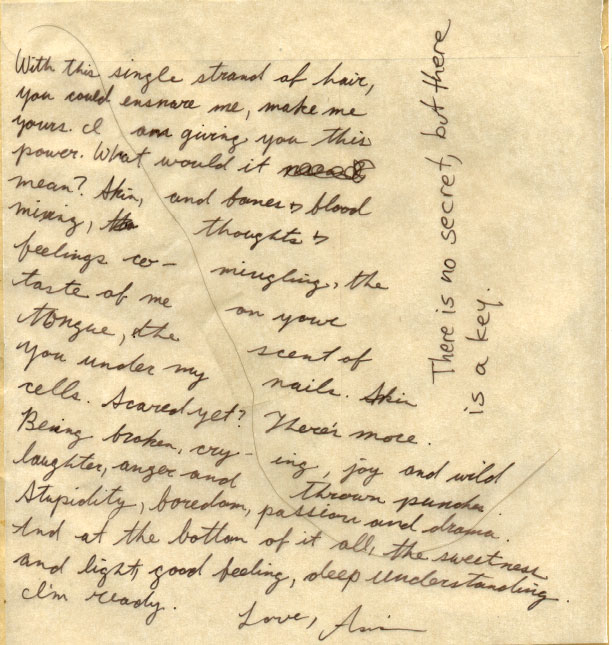 With this single strand of hair,
you could ensnare me, make me
yours. I am giving you this
power. What would it
mean? Skin, and bones & blood
mixing, thoughts &
feelings co- mingling, the
taste of me on your
tongue, the scent of
you under my nails. Skin
cells. Scared yet? There's more.
Being broken, cry- ing, joy and wild
laughter, anger and thrown punches.
Stupidity, boredom, passion and drama.
And at the bottom of it all, the sweetness
and light, good feeling, deep understanding.
I'm ready.
Love,
There is no secret, but there
is a key.